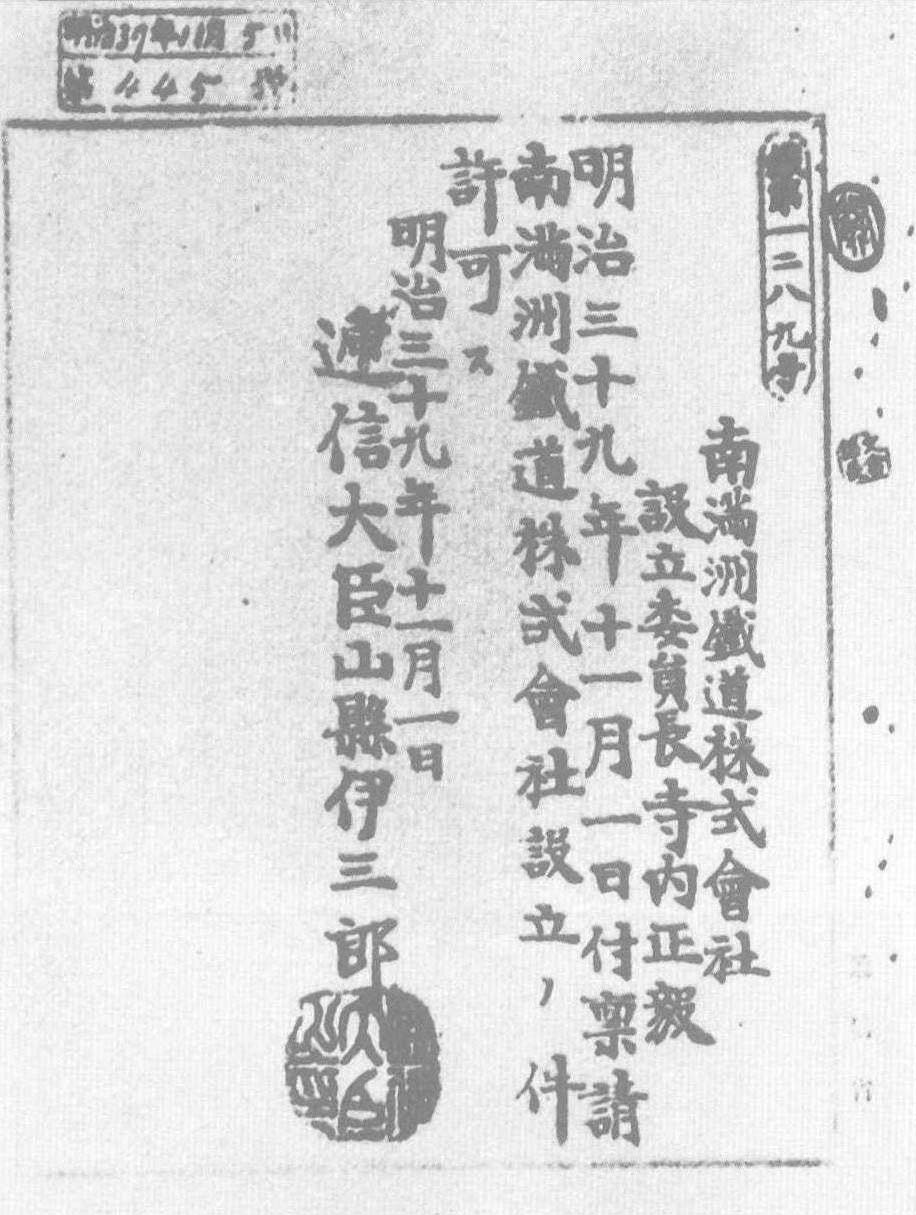 第一二八九号
南滿洲鐵道株式會社
設立委員長寺内正毅
明治三十九年十一月一日付稟請
南滿洲鐵道株式會社設立ノ件
許可ス
明治三十九年十一月一日
遞信大臣山縣伊三郎
明治39年11月5日
第445号